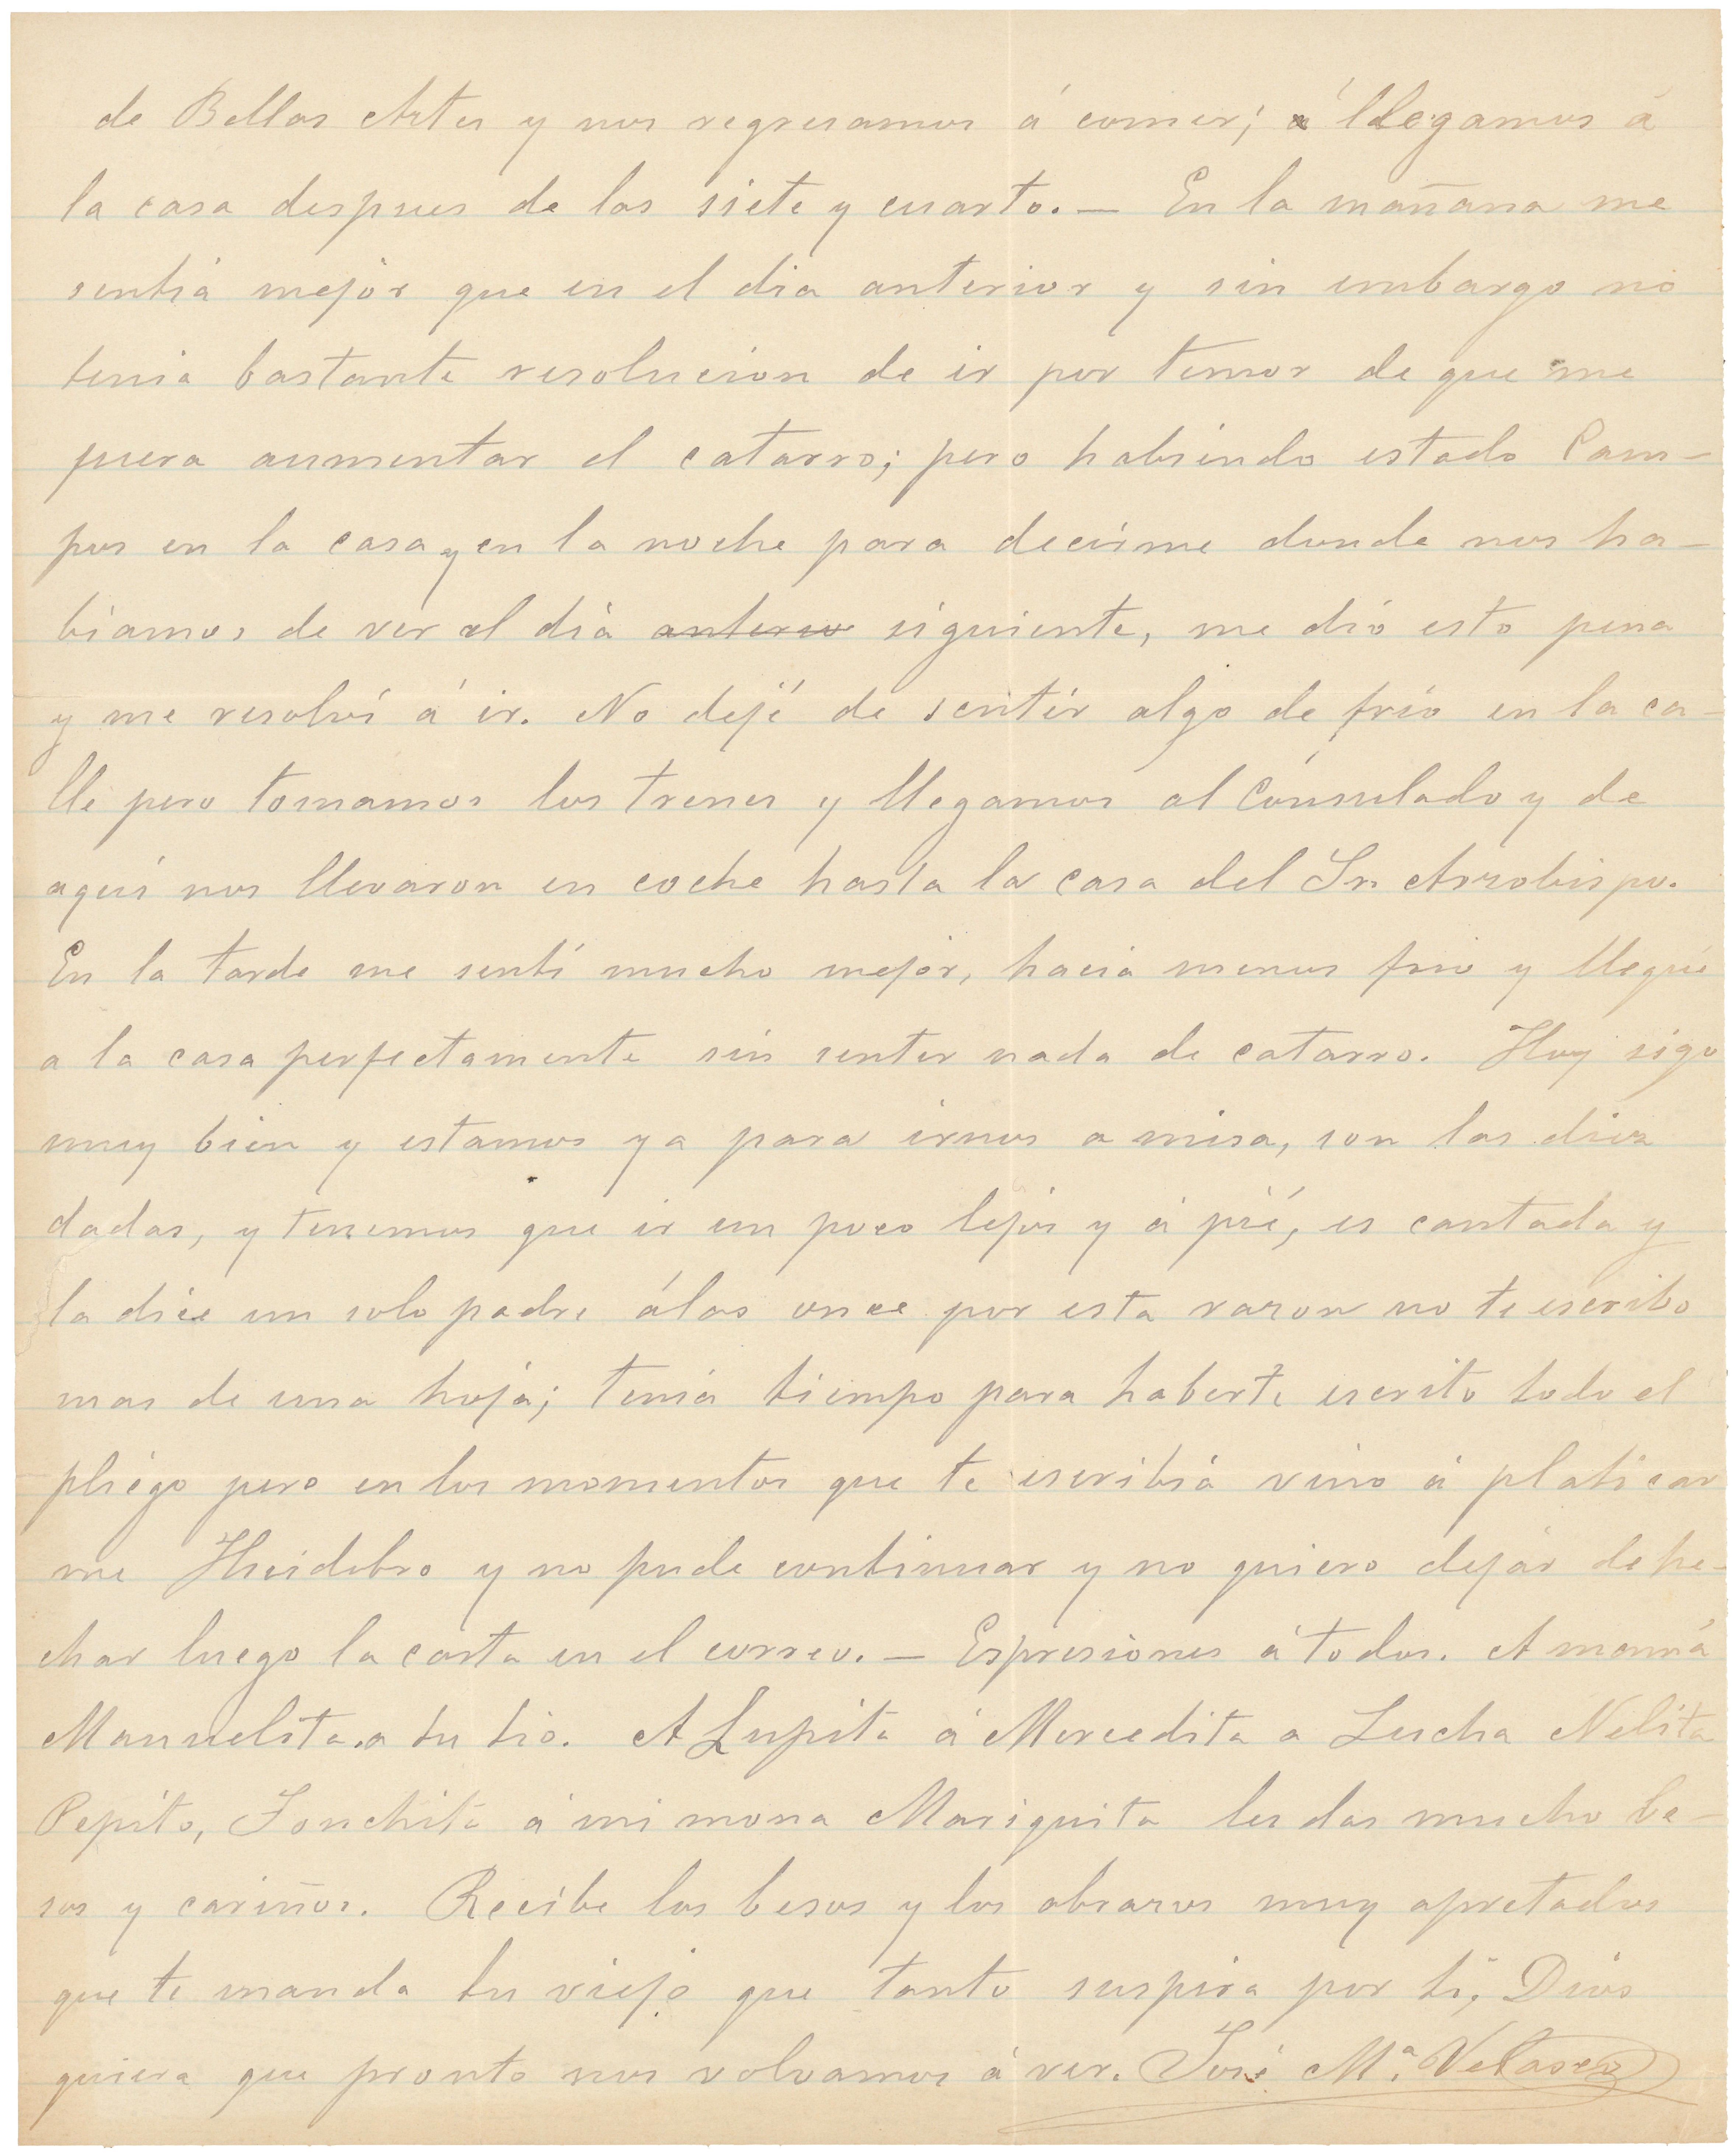 de Bellas Artes y nos regresamos á comer; á llegamos á
la casa despues de las siete y cuarto. — En la mañana me
sentiá mejor que en el dia anterior y sin embargo no
tenia bastante resolucion de ir por temor de que me
fuera aumentar el catarro; pero habiendo estado Cam-
pos en la casa y en la noche para decirme donde nos ha-
biamos de ver el diá anterio siguiente, me dió esto pena
y me resolví á ir. No dejé de sentir algo de frio en la ca-
lle pero tomamos los trenes y llegamos al Cónsulado y de
aquí nos llevaron en coche hasta la casa del Sr. Arzobispo.
En la tarde me sentí mucho mejor, hacia menos frio y llegué
a la casa perfectamente sin sentir nada de catarro. Hoy sigo
muy bien y estamos ya para irnos a misa, son las diez
dadas, y tenemos que ir un poco lejos y á pié, es cantada y
la dice un solo padre álas once por esta razon no te escribo
mas de una hoja; tenia tiempo para haberte escrito todo el
pliego pero en los momentos que te escribiá vino á platicar
me Huidobro y no pude continuar y no quiero dejar de he-
char luego la carta en el correo. — Espresiones á todos. A mamá
Manuelita. a tu tio. A Lupita á Mercedita a Lucha Nelita
Pepito, Conchita á mi mona Mariquita les das mucho be-
sos y cariños. Recibe los besos y los abrazos muy apretados
que te manda tu viejo que tanto suspira por ti, Dios
quiera que pronto nos volvamos á ver. José Mª. Velasco